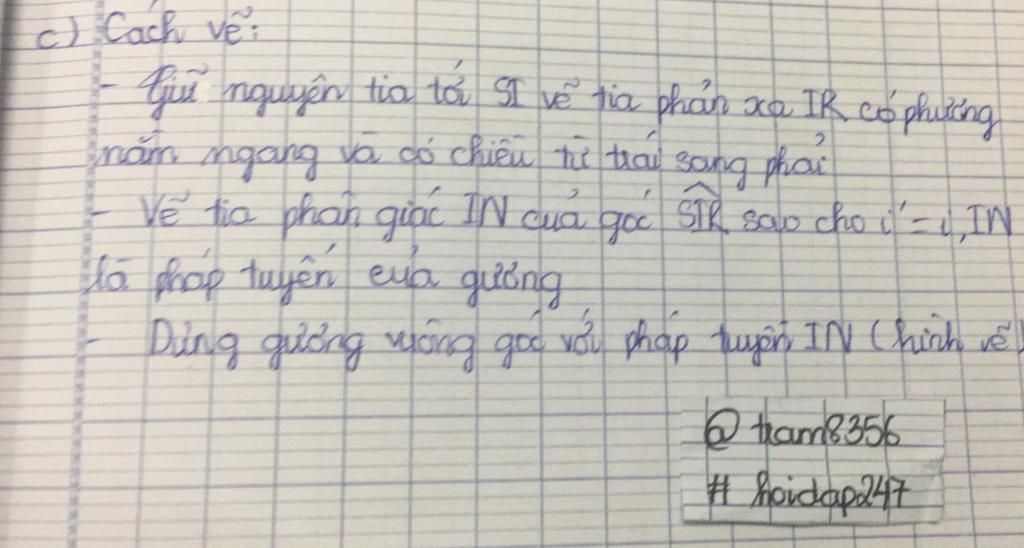 c) Cách vẽ:
- Giữ nguyên tia tới SI vẽ tia phản xạ IR có phương
nằm ngang và có chiều từ trái sang phải
- Vẽ tia phân giác IN của góc SIR sao cho i' = i, IN
là pháp tuyến của gương
- Dựng gương vuông góc với pháp tuyến IN (hình vẽ)
@ tram8356
# hoidap247